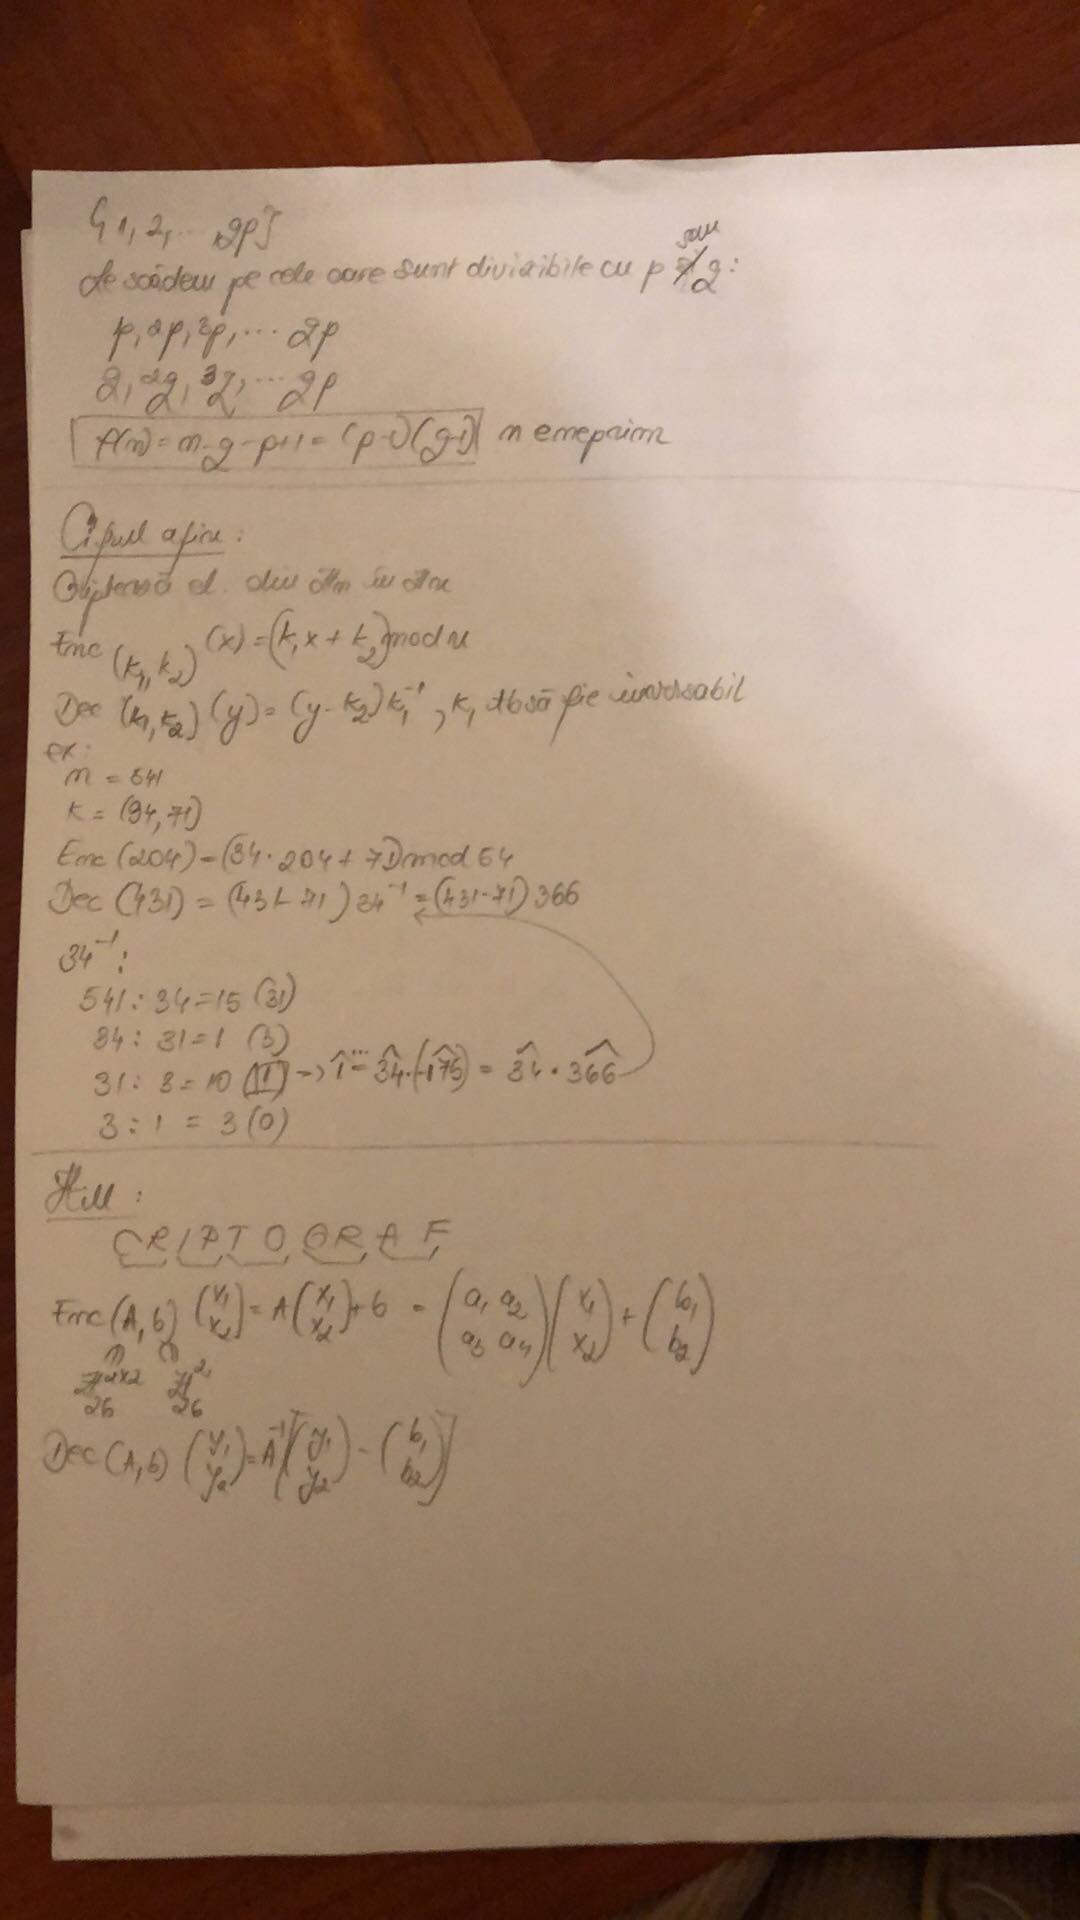 {1, 2, ... qp}
Le scădem pe cele care sunt divizibile cu p sau q:
p, 2p, 3p, ... qp
q, 2q, 3q, ... qp
f(n) = n-q-p+1 = (p-1)(q-1) n e neprim
Cifrul afin:
Criptează el. din Zn în Zn
Enc (k1, k2) (x) = (k1 x + k2) mod n
Dec (k1, k2) (y) = (y - k2) k1⁻¹, k1 tb să fie inversabil
ex:
n = 541
k = (34, 71)
Enc (204) = (34 · 204 + 71) mod 54
Dec (431) = (431 - 71) 34⁻¹ = (431-71) 366
34⁻¹:
541 : 34 = 15 (31)
34 : 31 = 1 (3)
31 : 3 = 10 (1) -> 1̂ = ... 34·(-175) = 34 · 366
3 : 1 = 3 (0)
Hill:
C R I P T O G R A F
Enc (A, b) (x1 x2) = A (x1 x2) + b = (a1 a2 a3 a4) (x1 x2) + (b1 b2)
Z26^2x2 Z26^2
Dec (A, b) (y1 y2) = A⁻¹ [(y1 y2) - (b1 b2)]